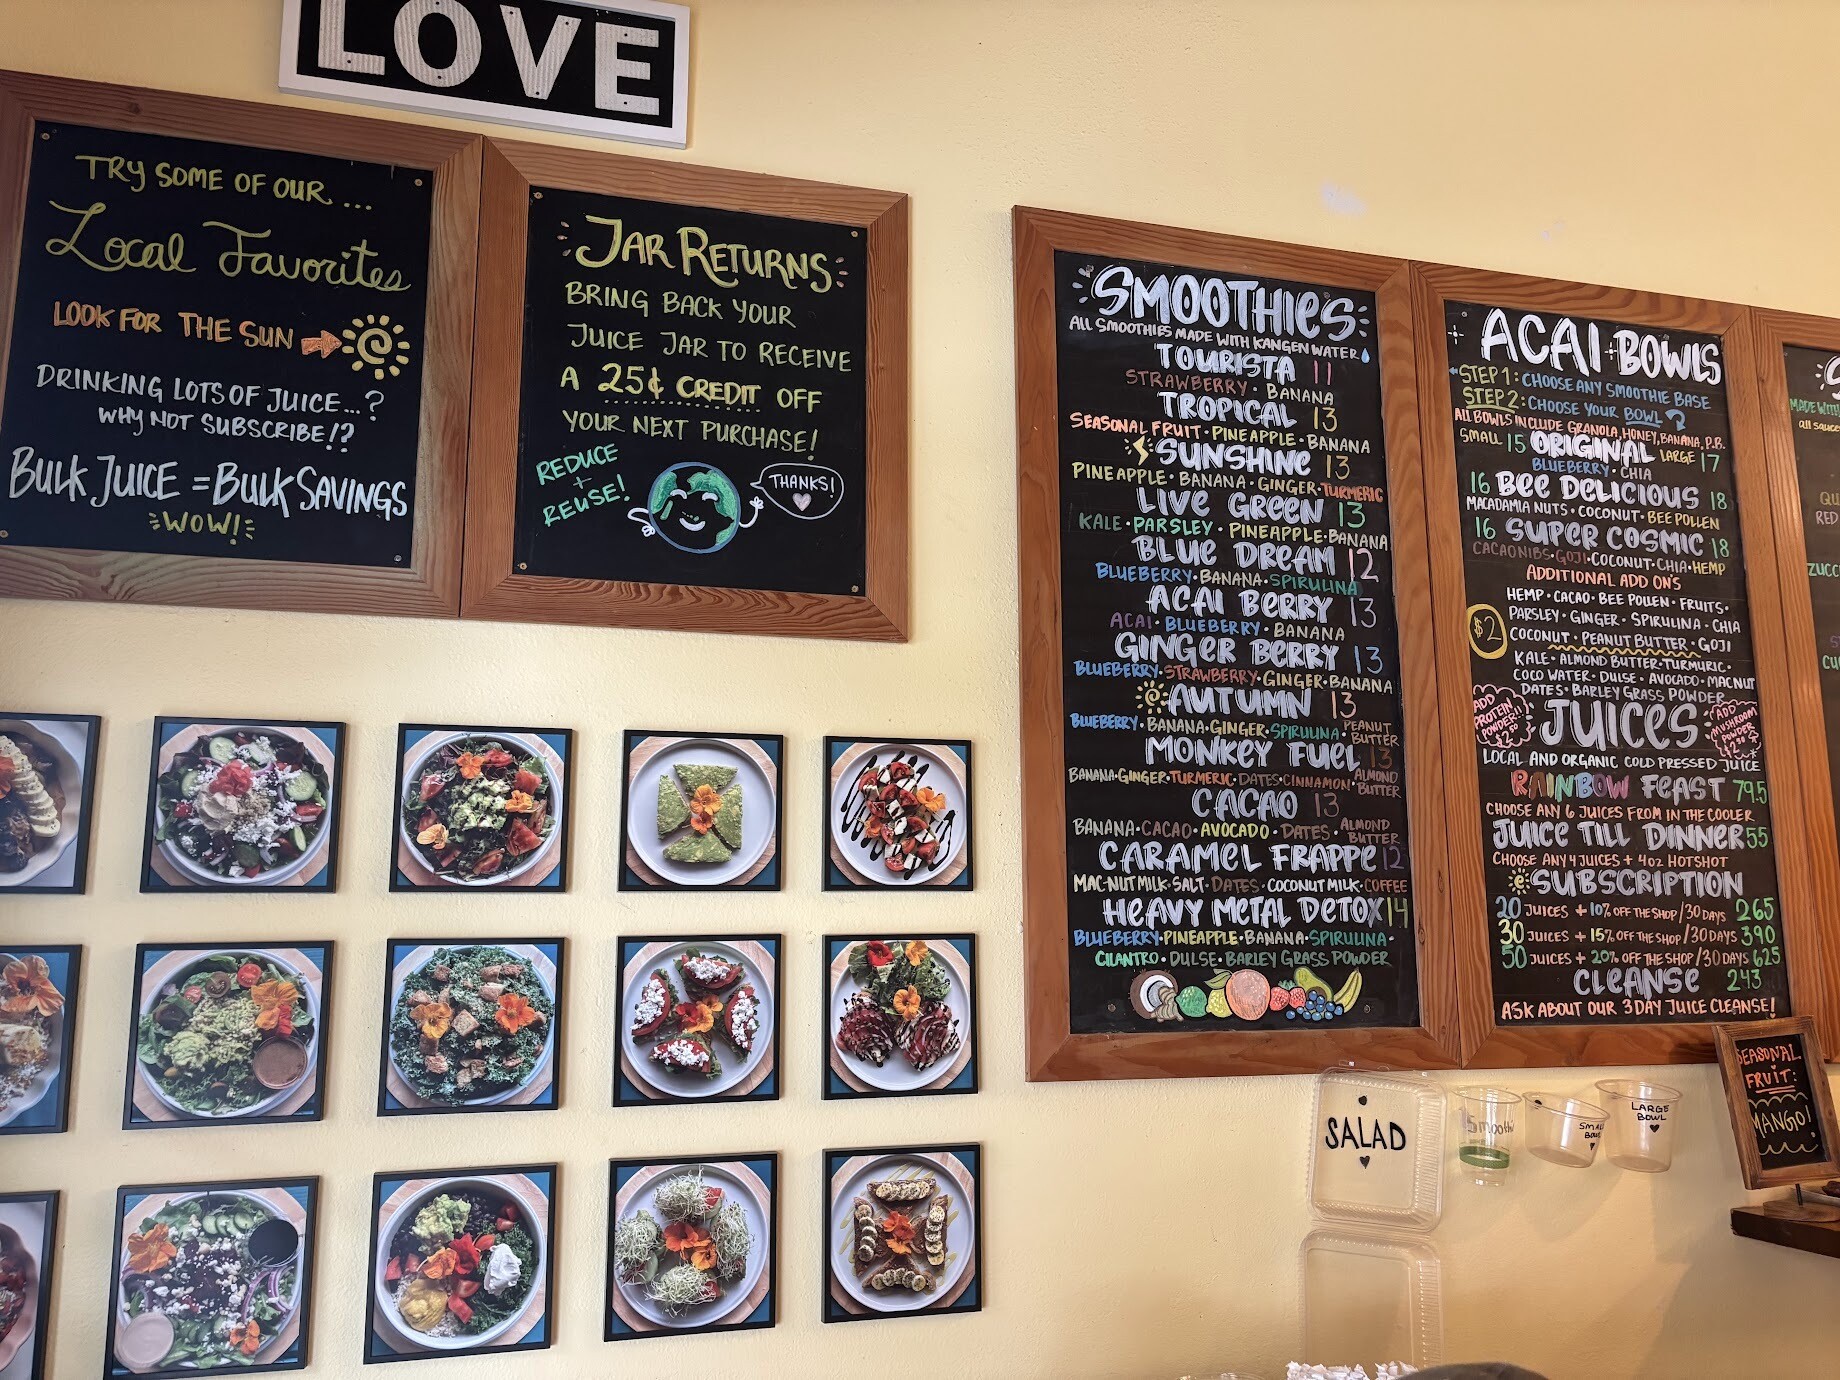 LOVE
TRY SOME OF OUR...
Local Favorites
LOOK FOR THE SUN
DRINKING LOTS OF JUICE...?
WHY NOT SUBSCRIBE!?
BULK JUICE = BULK SAVINGS
WOW!
JAR RETURNS
BRING BACK YOUR
JUICE JAR TO RECEIVE
A 25¢ CREDIT OFF
YOUR NEXT PURCHASE!
REDUCE
+
REUSE!
THANKS!
SMOOTHIES
ALL SMOOTHIES MADE WITH KANGEN WATER
TOURISTA 11
STRAWBERRY • BANANA
TROPICAL 13
SEASONAL FRUIT • PINEAPPLE • BANANA
SUNSHINE 13
PINEAPPLE • BANANA • GINGER • TURMERIC
LIVE GREEN 13
KALE • PARSLEY • PINEAPPLE • BANANA
BLUE DREAM 12
BLUEBERRY • BANANA • SPIRULINA
ACAI BERRY 13
ACAI • BLUEBERRY • BANANA
GINGER BERRY 13
BLUEBERRY • STRAWBERRY • GINGER • BANANA
AUTUMN 13
BLUEBERRY • BANANA • GINGER • SPIRULINA • PEANUT BUTTER
MONKEY FUEL 13
BANANA • GINGER • TURMERIC • DATES • CINNAMON • ALMOND BUTTER
CACAO 13
BANANA • CACAO • AVOCADO • DATES • ALMOND BUTTER
CARAMEL FRAPPE 12
MAC-NUT MILK • SALT • DATES • COCONUT MILK • COFFEE
HEAVY METAL DETOX 14
BLUEBERRY • PINEAPPLE • BANANA • SPIRULINA •
CILANTRO • DULSE • BARLEY GRASS POWDER
ACAI BOWLS
STEP 1: CHOOSE ANY SMOOTHIE BASE
STEP 2: CHOOSE YOUR BOWL
ALL BOWLS INCLUDE GRANOLA, HONEY, BANANA, P.B.
SMALL 15 ORIGINAL LARGE 17
BLUEBERRY • CHIA
16 BEE DELICIOUS 18
MACADAMIA NUTS • COCONUT • BEE POLLEN
16 SUPER COSMIC 18
CACAO NIBS • GOJI • COCONUT • CHIA • HEMP
ADDITIONAL ADD ON'S
$2
HEMP • CACAO • BEE POLLEN • FRUITS •
PARSLEY • GINGER • SPIRULINA • CHIA
COCONUT • PEANUT BUTTER • GOJI
KALE • ALMOND BUTTER • TURMURIC •
COCO WATER • DULSE • AVOCADO • MAC NUT
DATES • BARLEY GRASS POWDER
ADD PROTEIN POWDER!! $2.50
JUICES
ADD MUSHROOM POWDER $2.50
LOCAL AND ORGANIC COLD PRESSED JUICE
RAINBOW FEAST 79.5
CHOOSE ANY 6 JUICES FROM IN THE COOLER
JUICE TILL DINNER 55
CHOOSE ANY 4 JUICES + 4OZ HOTSHOT
SUBSCRIPTION
20 JUICES + 10% OFF THE SHOP/30 DAYS 265
30 JUICES + 15% OFF THE SHOP/30 DAYS 390
50 JUICES + 20% OFF THE SHOP/30 DAYS 625
CLEANSE 243
ASK ABOUT OUR 3 DAY JUICE CLEANSE!
MADE WITH
RED
SALAD
Smooth
SMALL
BOWL
LARGE
BOWL
SEASONAL
FRUIT:
MANGO!